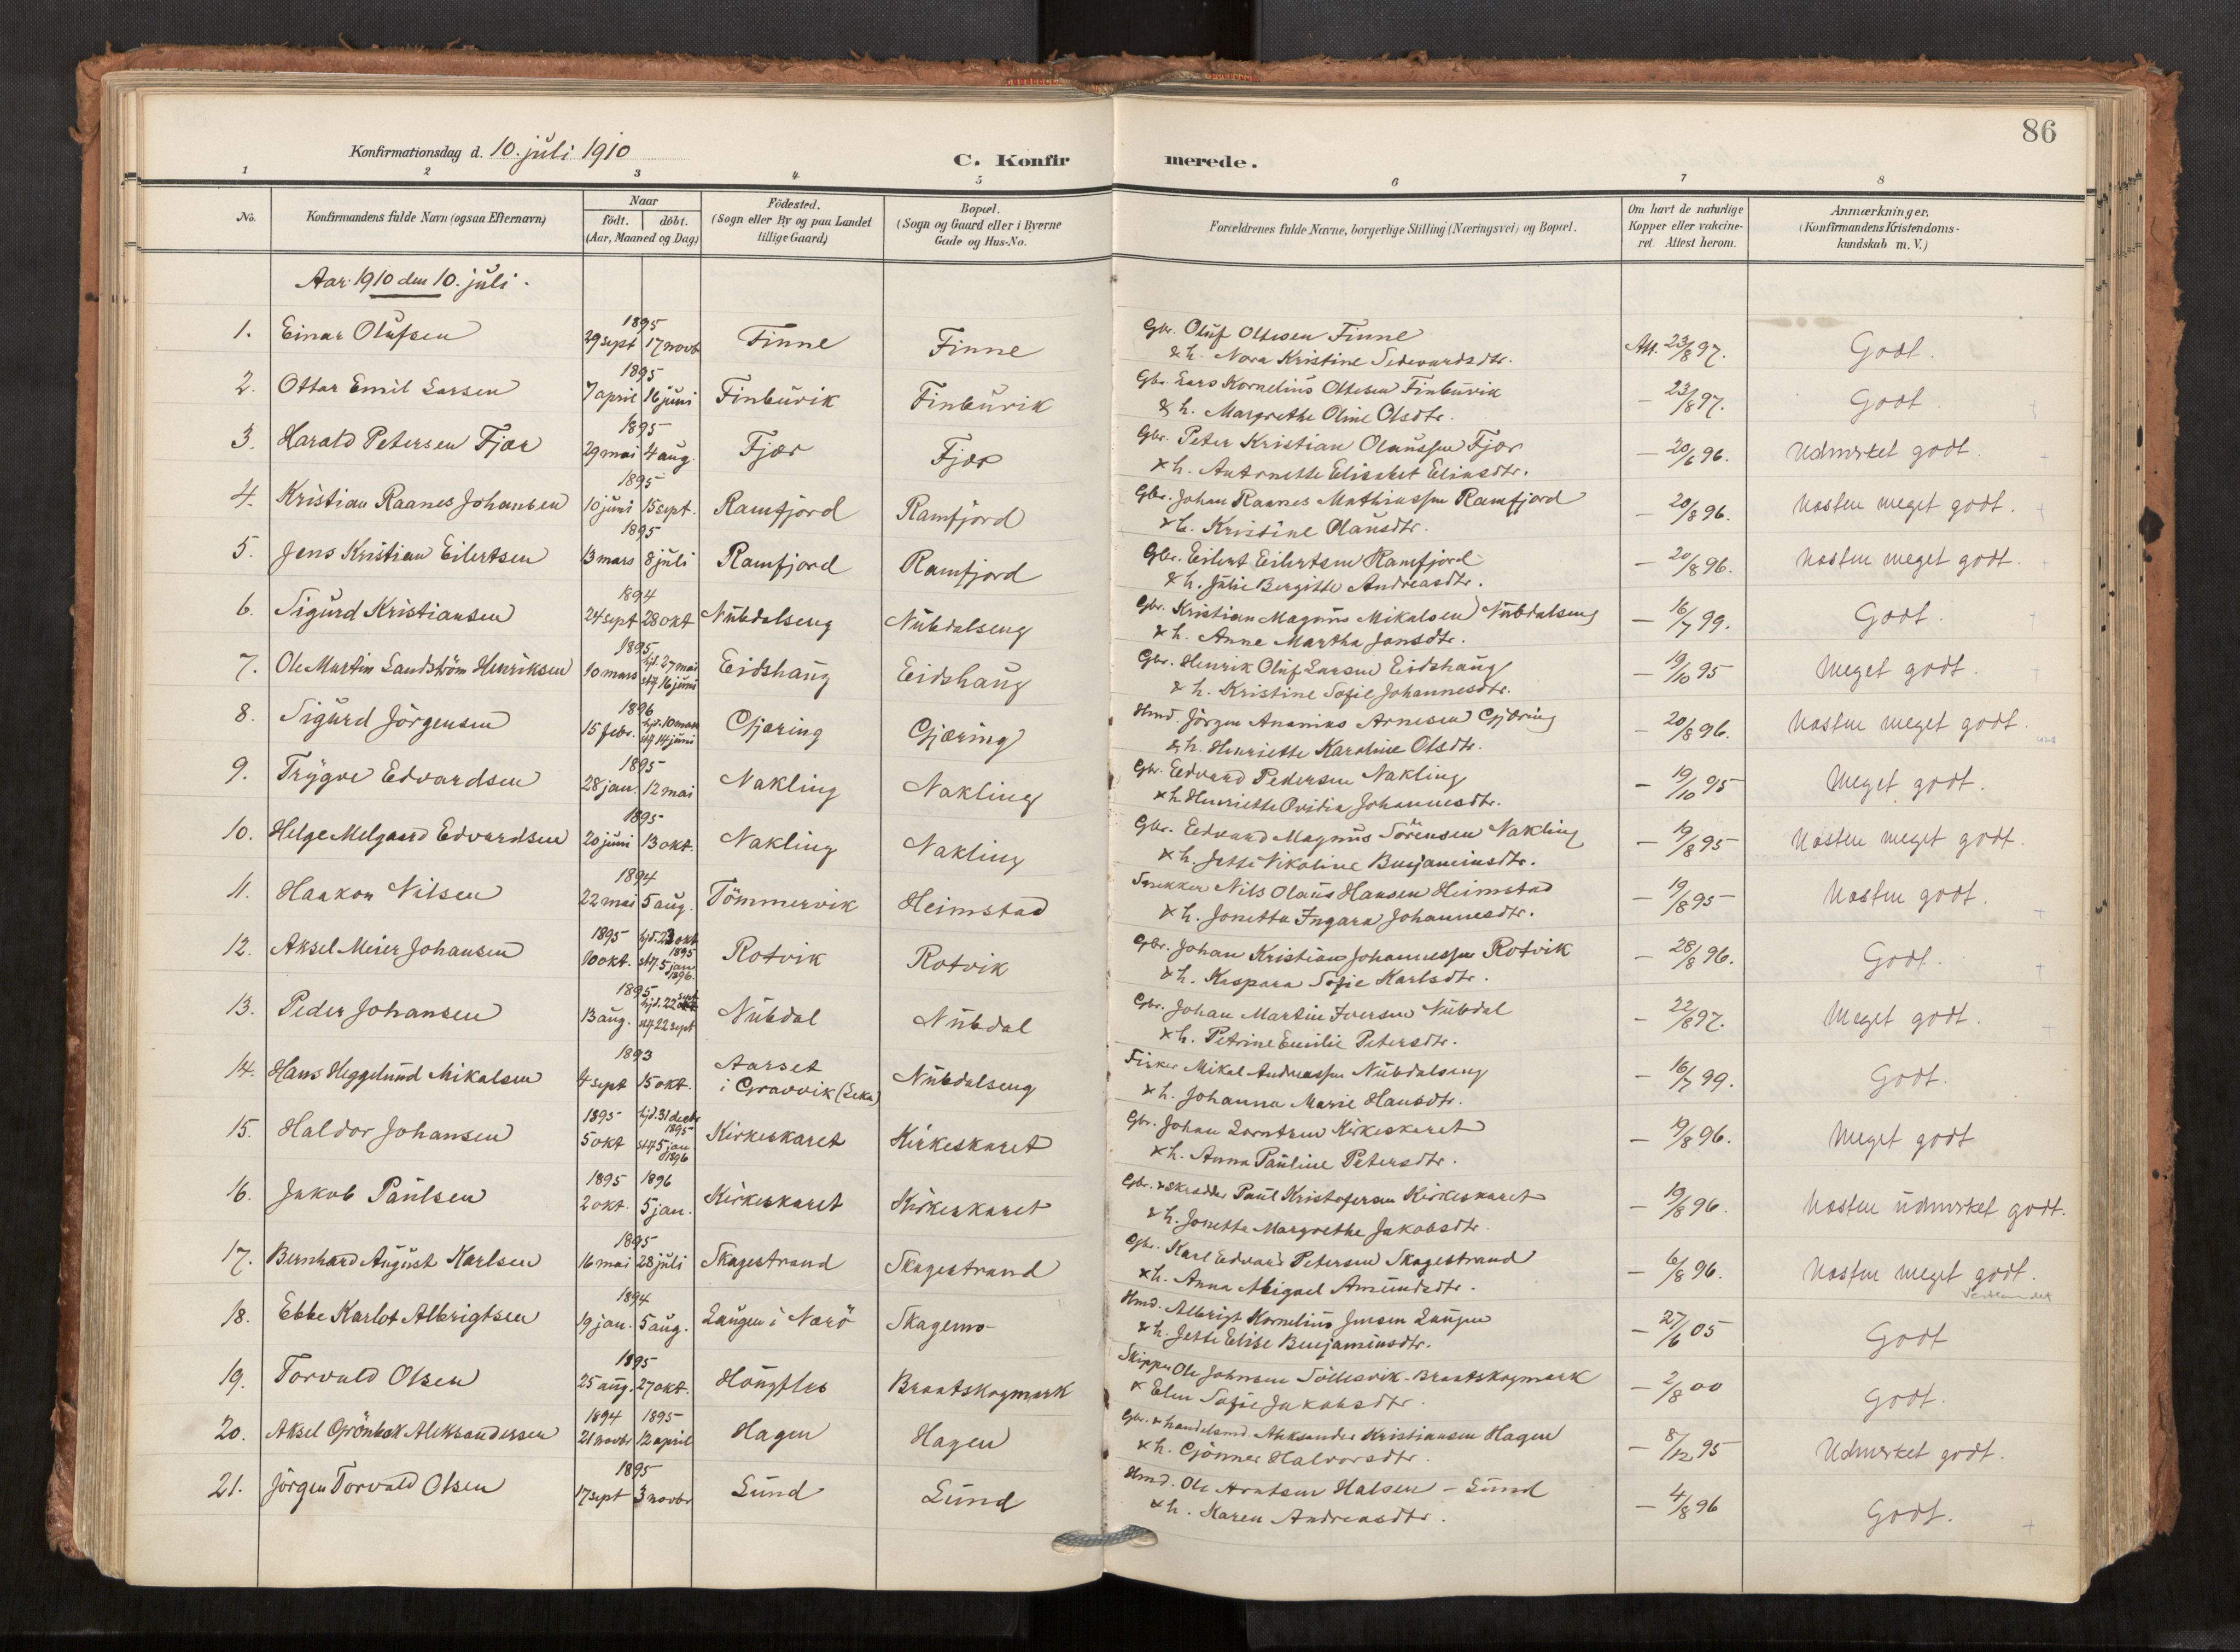 86
Konfirmationsdag d. 10. juli 1910
C. Konfirmerede.
1 2 3 4 5 6 7 8
No. Konfirmandens fulde Navn (ogsaa Efternavn) Naar födt. döbt. (Aar, Maaned og Dag) Födested. (Sogn eller By og paa Landet tillige Gaard) Bopæl. (Sogn og Gaard eller i Byerne Gade og Hus-No. Forældrenes fulde Navne, borgerlige Stilling (Næringsvei) og Bopæl. Om havt de naturlige Kopper eller vakcineret Attest herom. Anmærkninger. (Konfirmandens Kristendomskundskab m. V.)
Aar 1910 den 10. juli.
1. Einar Olufsen 1895 29 sept 17 novb Finne Finne Gbr. Oluf Ottesen Finne Att. 23/8 97. Godt.
& h. Nora Kristine Sedevardsdtr.
2. Ottar Emil Larsen 1895 7 april 16 juni Finburik Finburik Gbr. Lars Kornelius Ottesen Finburik — 23/8 97. Godt.
& h. Margrethe Oline Olsdtr.
3. Harald Petersen Fjær 1895 29 mai 4 aug. Fjær Fjær Gbr. Peter Kristian Olaussen Fjær — 20/6 96. Udmrket godt.
& h. Antonette Elisabet Eliasdtr.
4. Kristian Raanes Johansen 1895 10 juni 15 sept. Ramfjord Ramfjord Gbr. Johan Raanes Mathiassen Ramfjord — 20/8 96. Næsten meget godt.
& h. Kristine Olausdtr.
5. Jens Kristian Eilertsen 1895 13 mars 8 juli Ramfjord Ramfjord Gbr. Eilert Eilertsen Ramfjord — 20/8 96. Næsten meget godt.
& h. Julie Bergitte Andreasdtr.
6. Sigurd Kristiansen 1894 24 sept 28 okt Nubdalseng Nubdalseng Gbr. Kristian Magnus Mikalsen Nubdalseng — 16/7 99. Godt.
& h. Anne Martha Jonsdtr.
7. Ole Martin Landström Henriksen 1895 10 mars hjd. 27 mai stf 16 juni Eidshaug Eidshaug Gbr. Henrik Oluf Larsen Eidshaug — 19/10 95 Meget godt.
& h. Kristine Sofie Johannesdtr.
8. Sigurd Jörgensen 1896 15 febr. hjd. 10 mars stf 14 juni Gjæring Gjæring Hmd. Jörgen Ananias Arnesen Gjæring — 20/8 96. Næsten meget godt.
& h. Henriette Karoline Olsdtr.
9. Trygve Edvardsen 1895 28 jan. 12 mai Nakling Nakling Gbr. Edvard Pedersen Nakling — 19/10 95 Meget godt.
& h. Henriette Ovidia Johannesdtr.
10. Helge Melgaard Edvardsen 1895 20 juni 13 okt. Nakling Nakling Gbr. Edvard Magnus Sörensen Nakling — 19/8 95 Næsten meget godt.
& h. Jette Nikoline Benjaminsdtr.
11. Haakon Nilsen 1894 22 mai 5 aug. Tömmervik Heimstad Snekker Nils Olaus Hansen Heimstad — 19/8 95 Næsten godt.
& h. Jonetta Ingara Johannesdtr.
12. Aksel Meier Johansen 1895 10 okt. hjd. 23 okt 1895 stf. 5 jan 1896. Rotvik Rotvik Gbr. Johan Kristian Johannessen Rotvik — 28/8 96. Godt.
& h. Kaspara Sofie Karlsdtr.
13. Peder Johansen 1895 13 aug. hjd. 22 sept stf 22 sept Nubdal Nubdal Gbr. Johan Martin Iversen Nubdal — 22/8 97. Meget godt.
& h. Petrine Emilie Petersdtr.
14. Hans Heggelund Mikalsen 1893 4 sept 15 okt. Aarset i Gravvik (Leka) Nubdalseng Fisker Mikal Andreassen Nubdalseng — 16/7 99. Godt.
& h. Johanna Marie Hansdtr.
15. Haldor Johansen 1895 5 okt hjd. 31 decbr 1895 stf. 5 jan 1896 Kirkeskaret Kirkeskaret Gbr. Johan Lorntsen Kirkeskaret — 19/8 96. Meget godt
& h. Anna Pauline Petersdtr.
16. Jakob Paulsen 1895 1896 2 okt. 5 jan. Kirkeskaret Kirkeskaret Gbr. & skrædder Paul Kristofersen Kirkeskaret — 19/8 96. Næsten udmrket godt.
& h. Jonetta Margrethe Jakobsdtr.
17. Bernhard August Karlsen 1895 16 mai 28 juli Skagestrand Skagestrand Gbr. Karl Edvard Petersen Skagestrand — 6/8 96. Næsten meget godt.
& h. Anna Abigael Amundsdtr.
18. Ebbe Karlot Albrigtsen 1894 19 jan. 5 aug. Laugen i Nærö Skagemo Hmd. Albrigt Kornelius Jensen Laugen — 27/6 05 Godt
& h. Jette Elise Benjaminsdtr.
19. Torvald Olsen 1895 25 aug. 27 okt. Haugfles Braatskogmark Skipper Ole Johnsen Söllesvik-Braatskogmark — 2/8 00 Godt.
& Elen Sofie Jakobsdtr.
20. Aksel Grönbæk Aleksandersen 1894 1895 21 novbr 12 april Hagen Hagen Gbr. & handelsmd. Aleksander Kristiansen Hagen — 8/12 95 Udmrket godt.
& h. Gjönner Halvorsdtr.
21. Jörgen Torvald Olsen 1895 17 sept 3 novbr Lund Lund Hmd. Ole Arntsen Halsen - Lund — 4/8 96 Godt.
& h. Karen Andreasdtr.